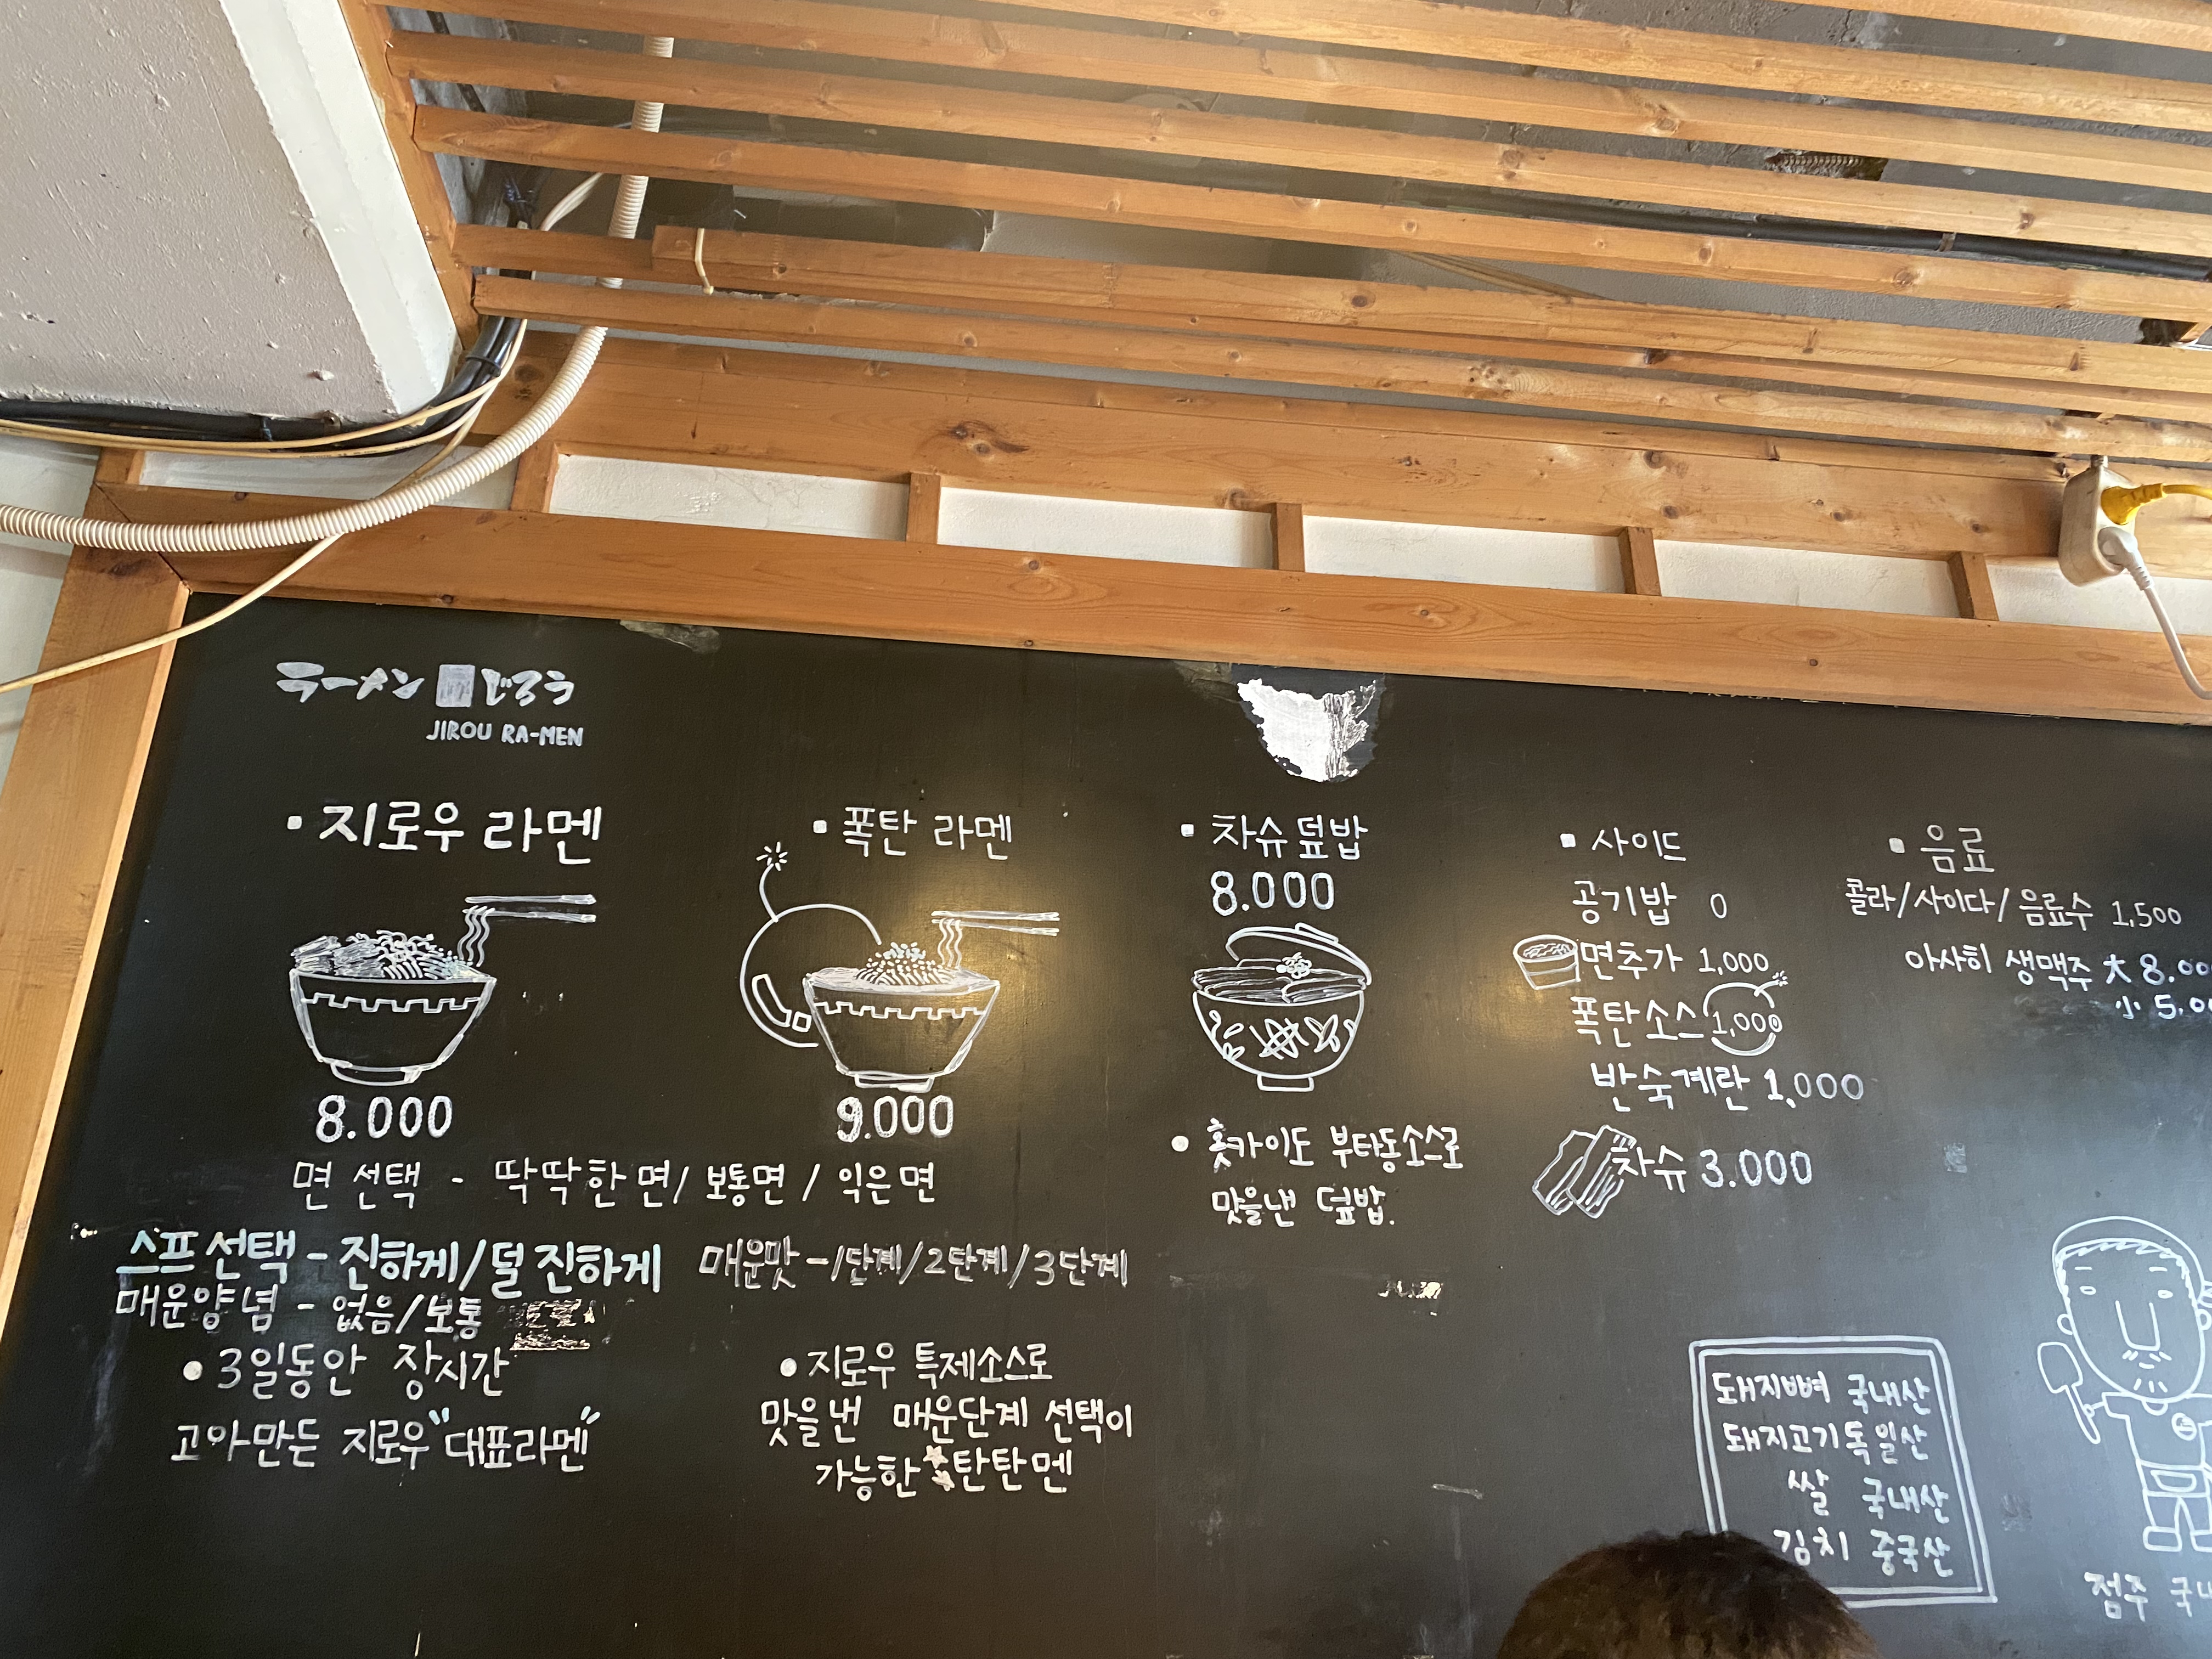 ラーメン じろう
JIROU RA-MEN
▪ 지로우 라멘
8.000
▪ 폭탄 라멘
9.000
면 선택 - 딱딱한면/ 보통면 / 익은면
스프선택 - 진하게/덜 진하게
매운양념 - 없음/보통
• 3일동안 장시간
고아만든 지로우 "대표라멘"
매운맛 - 1단계/2단계/3단계
• 지로우 특제소스로
맛을낸 매운단계 선택이
가능한 탄탄멘
▪ 차슈덮밥
8.000
• 홋카이도 부타동소스로
맛을낸 덮밥.
▪ 사이드
공기밥 0
면추가 1,000
폭탄소스 1,000
반숙계란 1,000
차슈 3.000
▪ 음료
콜라/사이다/음료수 1,500
아사히 생맥주 大 8.00
小 5.00
돼지뼈 국내산
돼지고기 독일산
쌀 국내산
김치 중국산
점주 국내